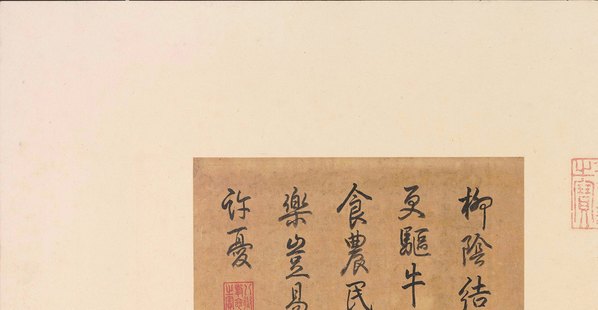 柳陰結
更驅牛
食農民
樂豈易
許憂